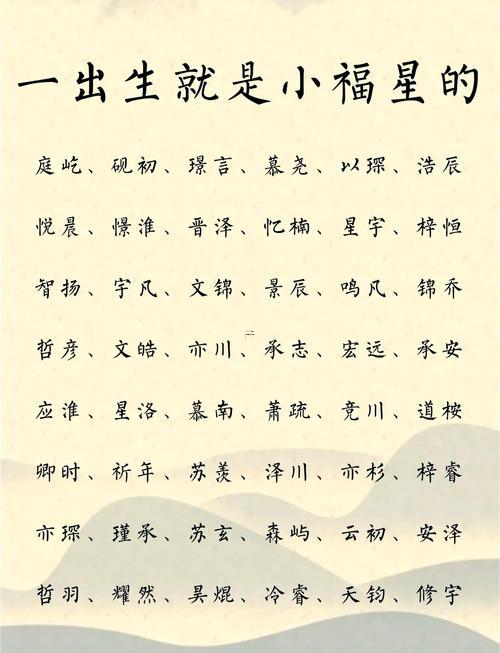 一出生就是小福星的
庭屹、砚初、璟言、慕尧、以琛、浩辰
悦晨、憬淮、晋泽、忆楠、星宇、梓恒
智扬、宇凡、文锦、景辰、鸣凡、锦乔
哲彦、文皓、亦川、承志、宏远、承安
应淮、星洛、慕南、萧疏、竞川、道桉
卿时、祈年、苏羡、泽川、亦杉、梓睿
亦琛、瑾承、苏玄、森屿、云初、安泽
哲羽、耀然、昊焜、冷睿、天钧、修宇